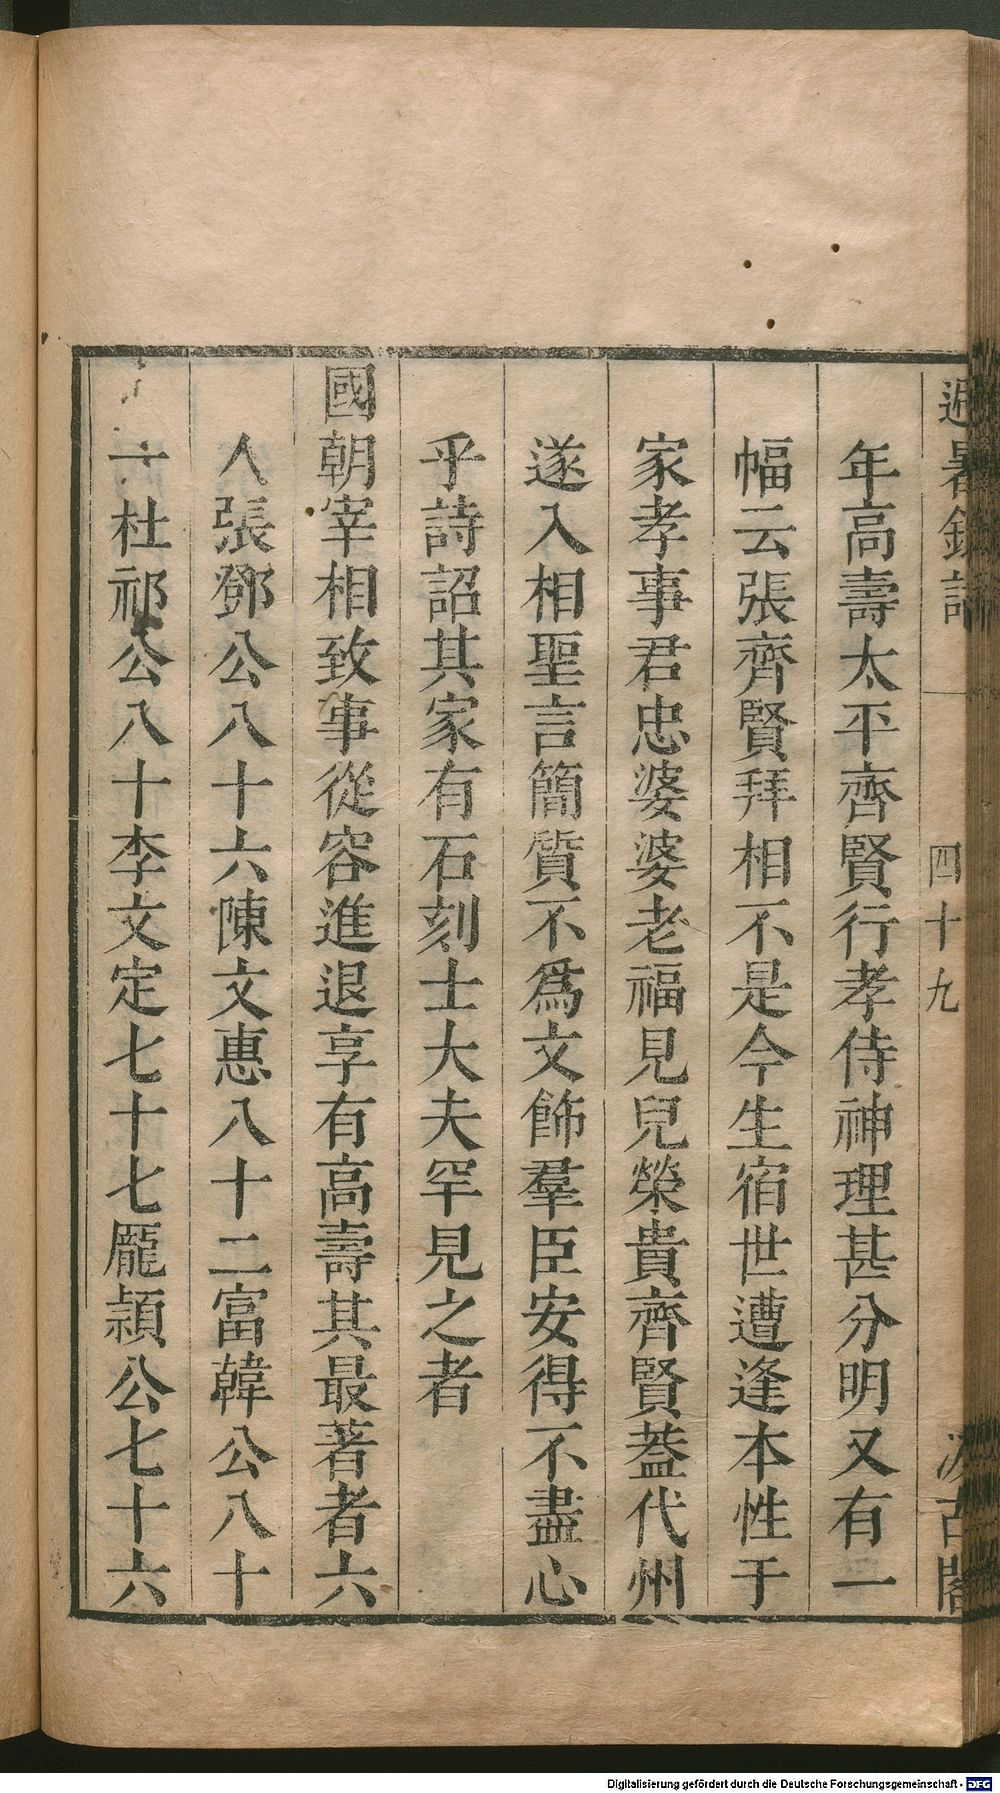 避暑錄話
四十九
汲古閣
年高壽太平齊賢行孝侍神理甚分明又有一
幅云張齊賢拜相不是今生宿世遭逢本性于
家孝事君忠婆婆老福見兒榮貴齊賢葢代州
遂入相聖言簡質不爲文飾羣臣安得不盡心
乎詩詔其家有石刻士大夫罕見之者
國朝宰相致事從容進退享有高壽其最著者六
人張鄧公八十六陳文惠八十二富韓公八十
一杜祁公八十李文定七十七龐頴公七十六
Digitalisierung gefördert durch die Deutsche Forschungsgemeinschaft - DFG